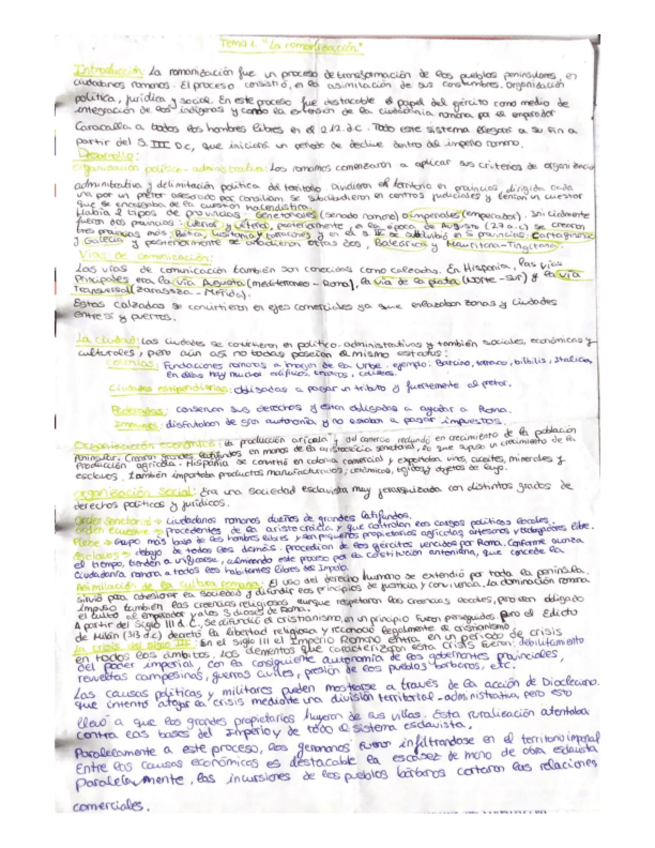 Tema 1. "La romanización"
Introducción: La romanización fue un proceso de transformación de los pueblos peninsulares, en
ciudadanos romanos. El proceso consistió, en la asimilación de sus costumbres, organización
política, jurídica y social. En este proceso fue destacable el papel del ejército como medio de
integración de los indígenas y la extensión de la ciudadanía romana por el emperador
Caracalla a todos los hombres libres en el 212 d.C. Todo este sistema llegara a su fin a
partir del S. III D.C, que iniciará un periodo de declive dentro del imperio romano.
Desarrollo:
Organización política-administrativa: Los romanos comenzaron a aplicar sus criterios de organización
administrativa y delimitación política del territorio. Dividieron el territorio en provincias dirigida cada
una por un pretor asesorado por consilium se subdividieron en centros judiciales y tenían un cuestor
que se encargaba de la cuestión hacendística.
Había 2 tipos de provincias: Senatoriales (senado romano) o imperiales (emperador). Inicialmente
fueron dos provincias: citerior y ulterior, posteriormente en la época de Augusto (27 a.c) se crearon
tres provincias más: Bética, lusitania y tarraconense y en el S III se subdividió en 5 provincias: Cartaginense
y Galecia y posteriormente se añadieron otras dos, Baleárica y Mauritana-Tingitana.
Vías de comunicación:
Las vías de comunicación también son conocidas como calzadas. En Hispania, las vías
principales eran la vía Augusta (mediterráneo-Roma), la vía de la plata (norte-sur) y la vía
Transversal (zaragoza-Mérida).
Estas calzadas se convirtieron en ejes comerciales ya que enlazaban zonas y ciudades
entre sí y puertos.
La ciudad: Las ciudades se convirtieron en político-administrativas y también sociales, económicas y
culturales, pero aún así no todas poseían el mismo estatus:
Colonias: Fundaciones romanas a imagen de la urbe. ejemplo: Barcino, tarraco, bilbilis, Itálica.
En ellas hay muchos edificios,
Ciudades estipendiarias: obligadas a pagar un tributo y fuertemente al pretor.
Federadas: conservan sus derechos y están obligadas a ayudar a Roma.
Inmunes: disfrutaban de gran autonomía y no estaban a pagar impuestos.
Organización económica: la producción agrícola y del comercio redundó en crecimiento de la población
peninsular. Crearon grandes latifundios en manos de la aristocracia senatorial, lo que supuso un crecimiento de la
producción agrícola. Hispania se convirtió en colonia comercial y exportaba vino, aceites, minerales y
esclavos. También importaba productos manufacturados; cerámicas, tejidos y objetos de lujo.
Organización social: Era una sociedad esclavista muy jerarquizada con distintos grados de
derechos políticos y jurídicos.
Orden senatorial → ciudadanos romanos dueños de grandes latifundios.
Orden ecuestre → procedentes de la aristocracia y que controlaban los cargos políticos locales.
Plebe → Grupo más bajo de los hombres libres y eran pequeños propietarios agrícolas, artesanos y trabajadores libre.
Esclavos → debajo de todos los demás. procedían de los ejércitos vencidos por Roma. Conforme avanza
el tiempo, tienden a unificarse, culminando este proceso por la Constitución antoniana, que concede la
ciudadanía romana a todos los habitantes libres del Imperio.
Asimilación de la cultura romana: El uso del derecho humano se extendió por toda la península.
sirvió para cohesionar la sociedad y difundir los principios de justicia y convivencia. La dominación romana
impuso también las creencias religiosas, aunque respetaron las creencias locales, pero era obligado
el culto al emperador y a los 3 dioses de Roma.
A partir del Siglo III d.C, se difundió el cristianismo, en un principio fueron perseguidos, pero el Edicto
de Milán (313 d.c) decretó la libertad religiosa y reconoció legalmente el cristianismo.
La crisis del siglo III: En el siglo III el Imperio Romano entra en un periodo de crisis
en todos los ámbitos. Los elementos que caracterizaron esta crisis fueron: debilitamiento
del poder imperial, con la consiguiente autonomía de los gobernantes provinciales,
revueltas campesinas, guerras civiles, presión de los pueblos bárbaros, etc.
Las causas políticas y militares pueden mostrarse a través de la acción de Diocleciano.
que intentó atajar la crisis mediante una división territorial-administrativa, pero esto
llevó a que los grandes propietarios huyeron de sus villas. Esta ruralización atentaba
contra las bases del Imperio y de todo el sistema esclavista,
Paralelamente a este proceso, los germanos fueron infiltrandose en el territorio imperial
Entre las causas económicas es destacable la escasez de mano de obra esclavista
paralelamente, las incursiones de los pueblos bárbaros cortaron las relaciones
comerciales.